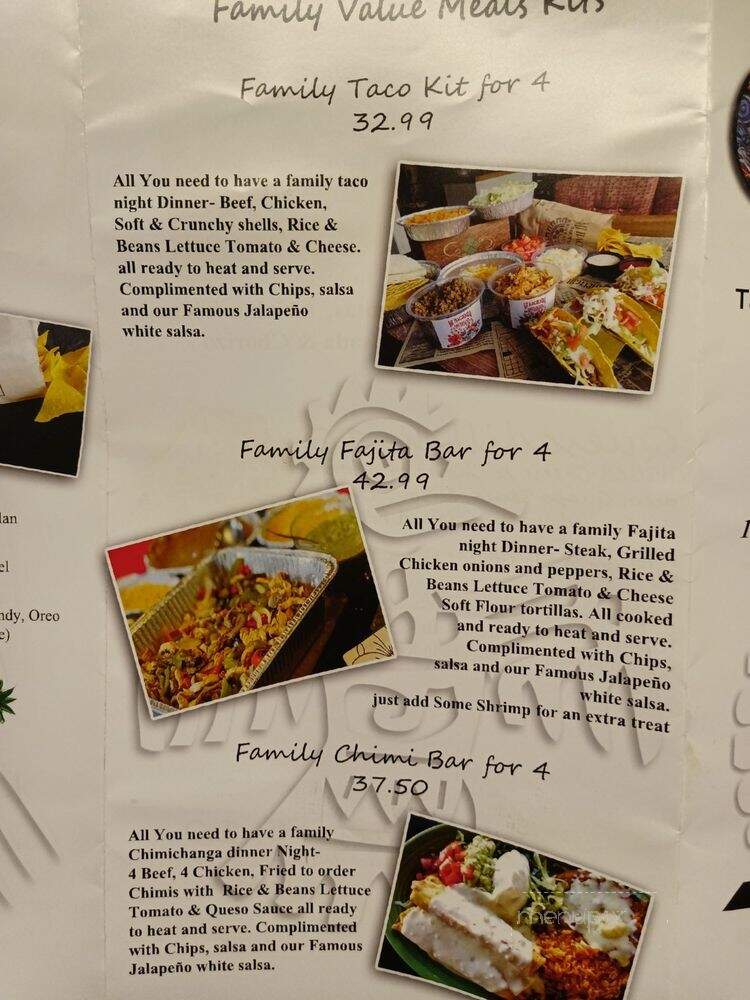 Family Value Meals Kits
Family Taco Kit for 4
32.99
All You need to have a family taco
night Dinner- Beef, Chicken,
Soft & Crunchy shells, Rice &
Beans Lettuce Tomato & Cheese.
all ready to heat and serve.
Complimented with Chips, salsa
and our Famous Jalapeño
white salsa.
Family Fajita Bar for 4
42.99
All You need to have a family Fajita
night Dinner- Steak, Grilled
Chicken onions and peppers, Rice &
Beans Lettuce Tomato & Cheese
Soft Flour tortillas. All cooked
and ready to heat and serve.
Complimented with Chips,
salsa and our Famous Jalapeño
white salsa.
just add Some Shrimp for an extra treat
Family Chimi Bar for 4
37.50
All You need to have a family
Chimichanga dinner Night-
4 Beef, 4 Chicken, Fried to order
Chimis with Rice & Beans Lettuce
Tomato & Queso Sauce all ready
to heat and serve. Complimented
with Chips, salsa and our Famous
Jalapeño white salsa.
lan
el
ndy, Oreo
e)
menupix